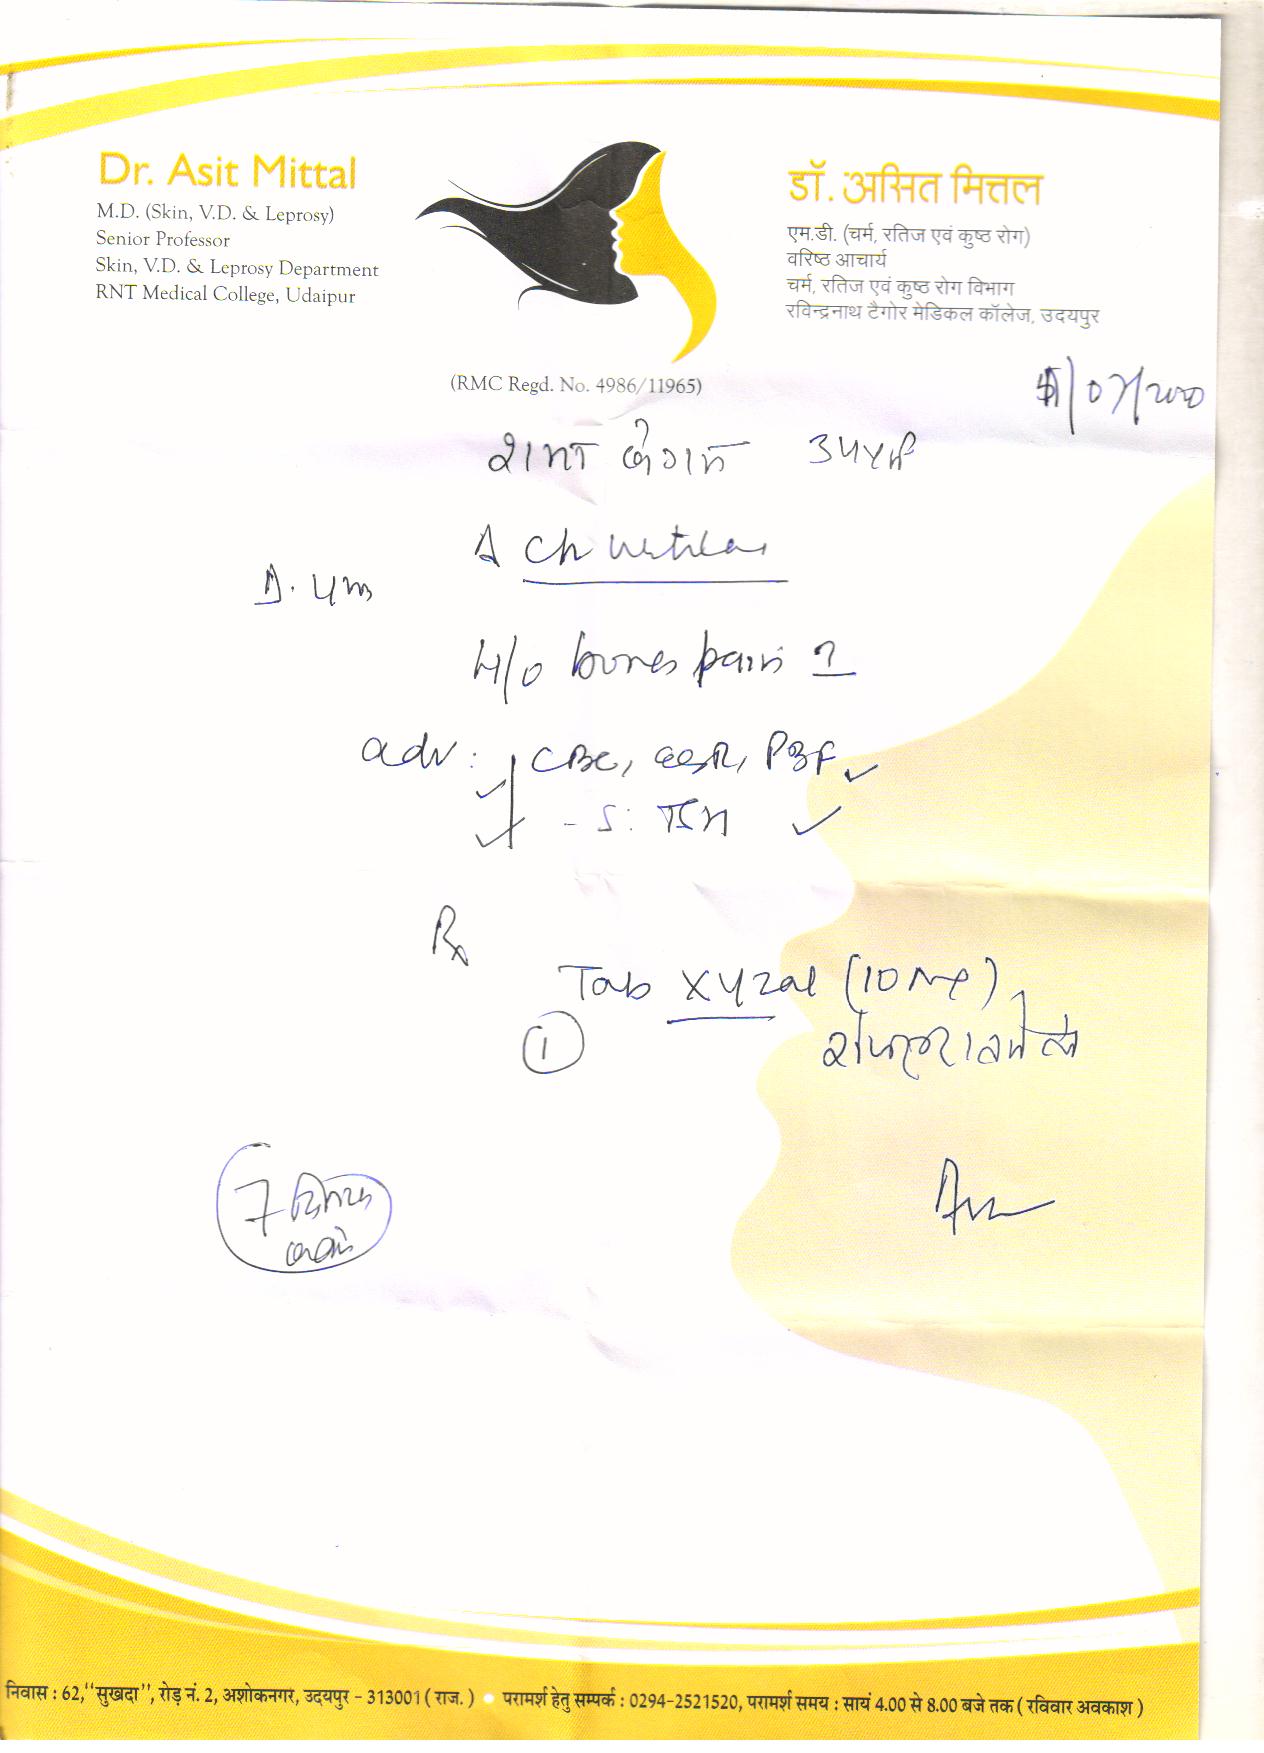 Dr. Asit Mittal
M.D. (Skin, V.D. & Leprosy)
Senior Professor
Skin, V.D. & Leprosy Department
RNT Medical College, Udaipur
डॉ. असित मित्तल
एम.डी. (चर्म, रतिज एवं कुष्ठ रोग)
वरिष्ठ आचार्य
चर्म, रतिज एवं कुष्ठ रोग विभाग
रविन्द्रनाथ टैगोर मेडिकल कॉलेज, उदयपुर
(RMC Regd. No. 4986/11965)
/07/2020
Ch
H/o bones pain ?
adv: CBC, ESR, PBF
- S:
Rx
Tab Xyzal (10 mg)
1
7
निवास : 62,''सुखदा'', रोड़ नं. 2, अशोकनगर, उदयपुर - 313001 ( राज. ) • परामर्श हेतु सम्पर्क : 0294-2521520, परामर्श समय : सायं 4.00 से 8.00 बजे तक ( रविवार अवकाश )